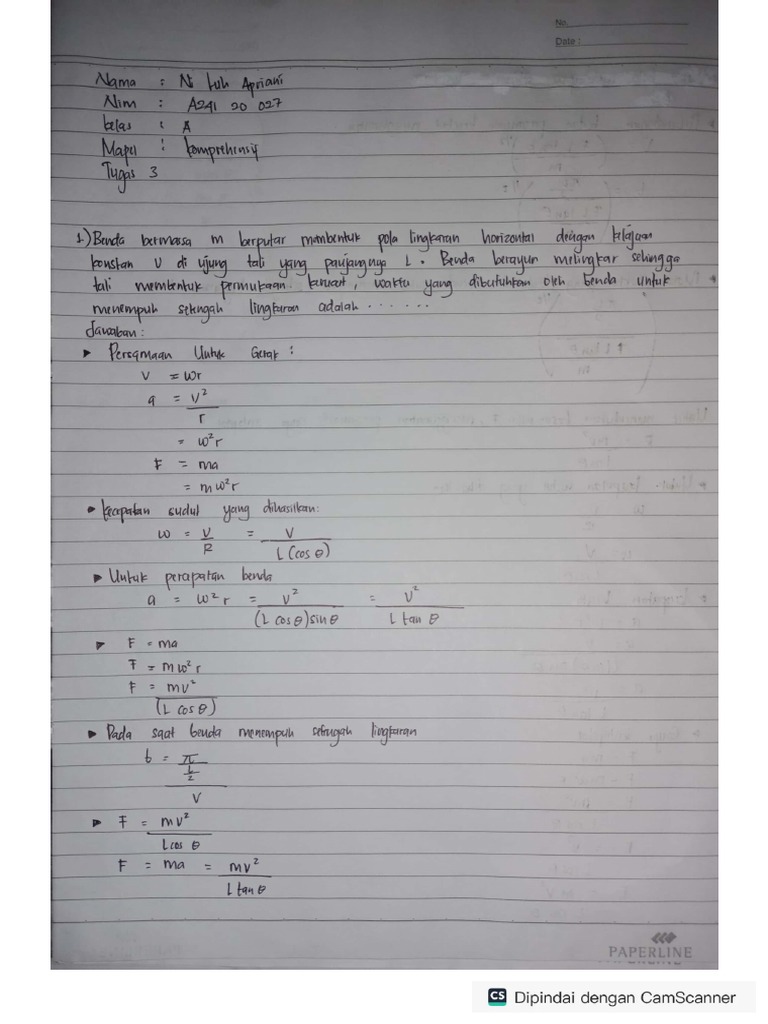 No.
Date :
Nama : Ni Luh Apriani
Nim : A241 20 027
kelas : A
Mapel : komprehensif
Tugas 3
1.) Benda bermassa m berputar membentuk pola lingkaran horizontal dengan kelajuan
konstan v di ujung tali yang panjangnya L. Benda berayun melingkar sehingga
tali membentuk permukaan kerucut, waktu yang dibutuhkan oleh benda untuk
menempuh setengah lingkaran adalah .......
Jawaban :
▶ Persamaan Untuk Gerak :
v = ωr
a = v²/r
= ω²r
F = ma
= m ω² r
• kecepatan sudut yang dihasilkan:
ω = v/R = v/L(cos θ)
▶ Untuk percepatan benda
a = ω² r = v²/(L cos θ) sin θ = v²/L tan θ
▶ F = ma
F = m ω² r
F = mv²/(L cos θ)
▶ Pada saat benda menempuh setengah lingkaran
t = π
2
v
▶ F = mv²/L cos θ
F = ma = mv²/L tan θ
PAPERLINE
CS Dipindai dengan CamScanner